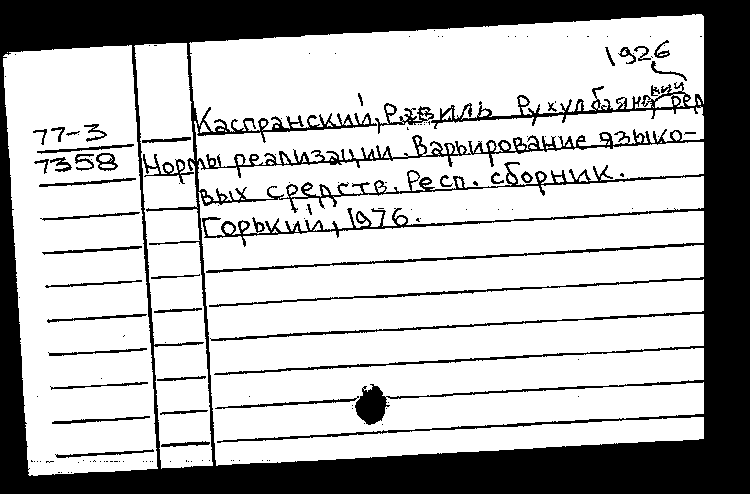 1926
Каспранский, Равиль Рухулбаянович, ред
77-3
7358 Нормы реализации. Варьирование языко-
вых средств. Респ. сборник.
Горький, 1976.